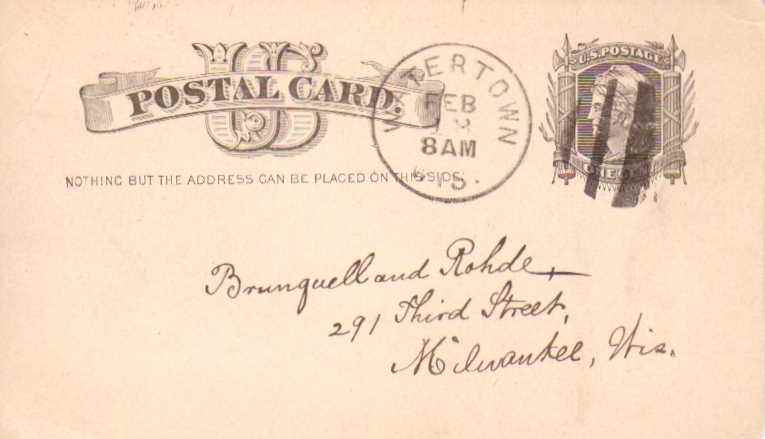 US
POSTAL CARD.
NOTHING BUT THE ADDRESS CAN BE PLACED ON THIS SIDE.
WATERTOWN
FEB
8AM
WIS.
U.S. POSTAGE
ONE CENT
Brunquell and Rohde,
291 Third Street,
Milwaukee, Wis.